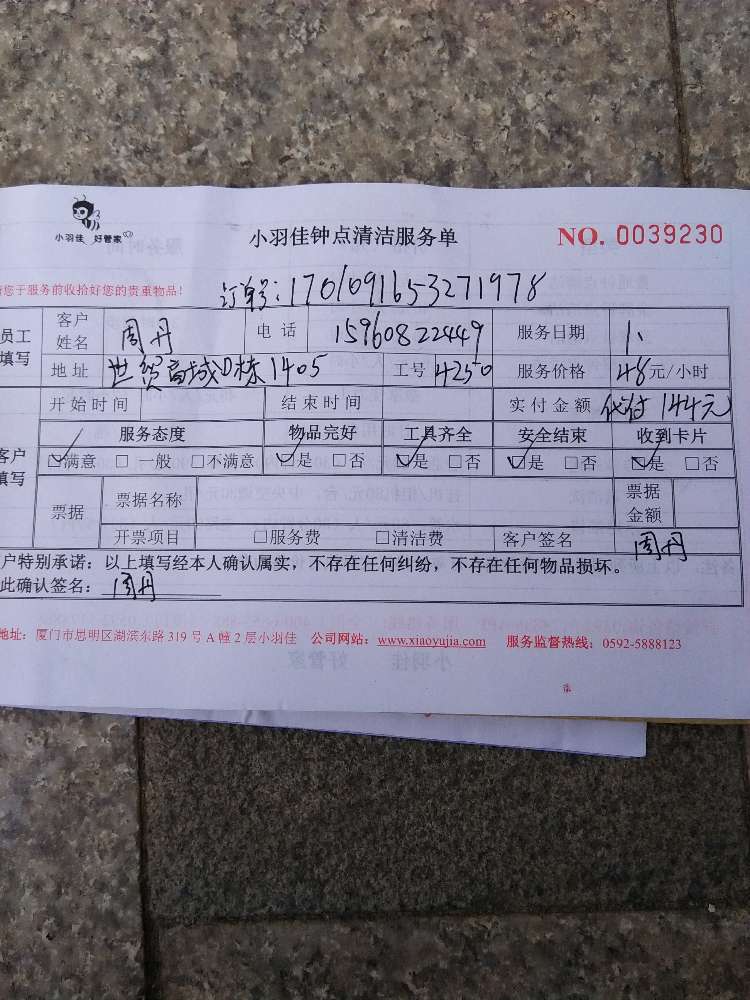 小羽佳 好管家
小羽佳钟点清洁服务单
NO. 0039230
您于服务前收拾好您的贵重物品!
订单号:1701091653271978
员工填写 客户姓名 周丹 电话 15960822449 服务日期 1、
地址 世贸商城D栋1405 工号 4250 服务价格 48元/小时
开始时间 结束时间 实付金额 代付 144元
服务态度 物品完好 工具齐全 安全结束 收到卡片
客户填写 ☑满意 □一般 □不满意 ☑是 □否 ☑是 □否 ☑是 □否 ☑是 □否
票据 票据名称 票据金额
开票项目 □服务费 □清洁费 客户签名 周丹
户特别承诺:以上填写经本人确认属实,不存在任何纠纷,不存在任何物品损坏。
此确认签名:周丹
地址:厦门市思明区湖滨东路319号A幢2层小羽佳 公司网站:www.xiaoyujia.com 服务监督热线:0592-5888123